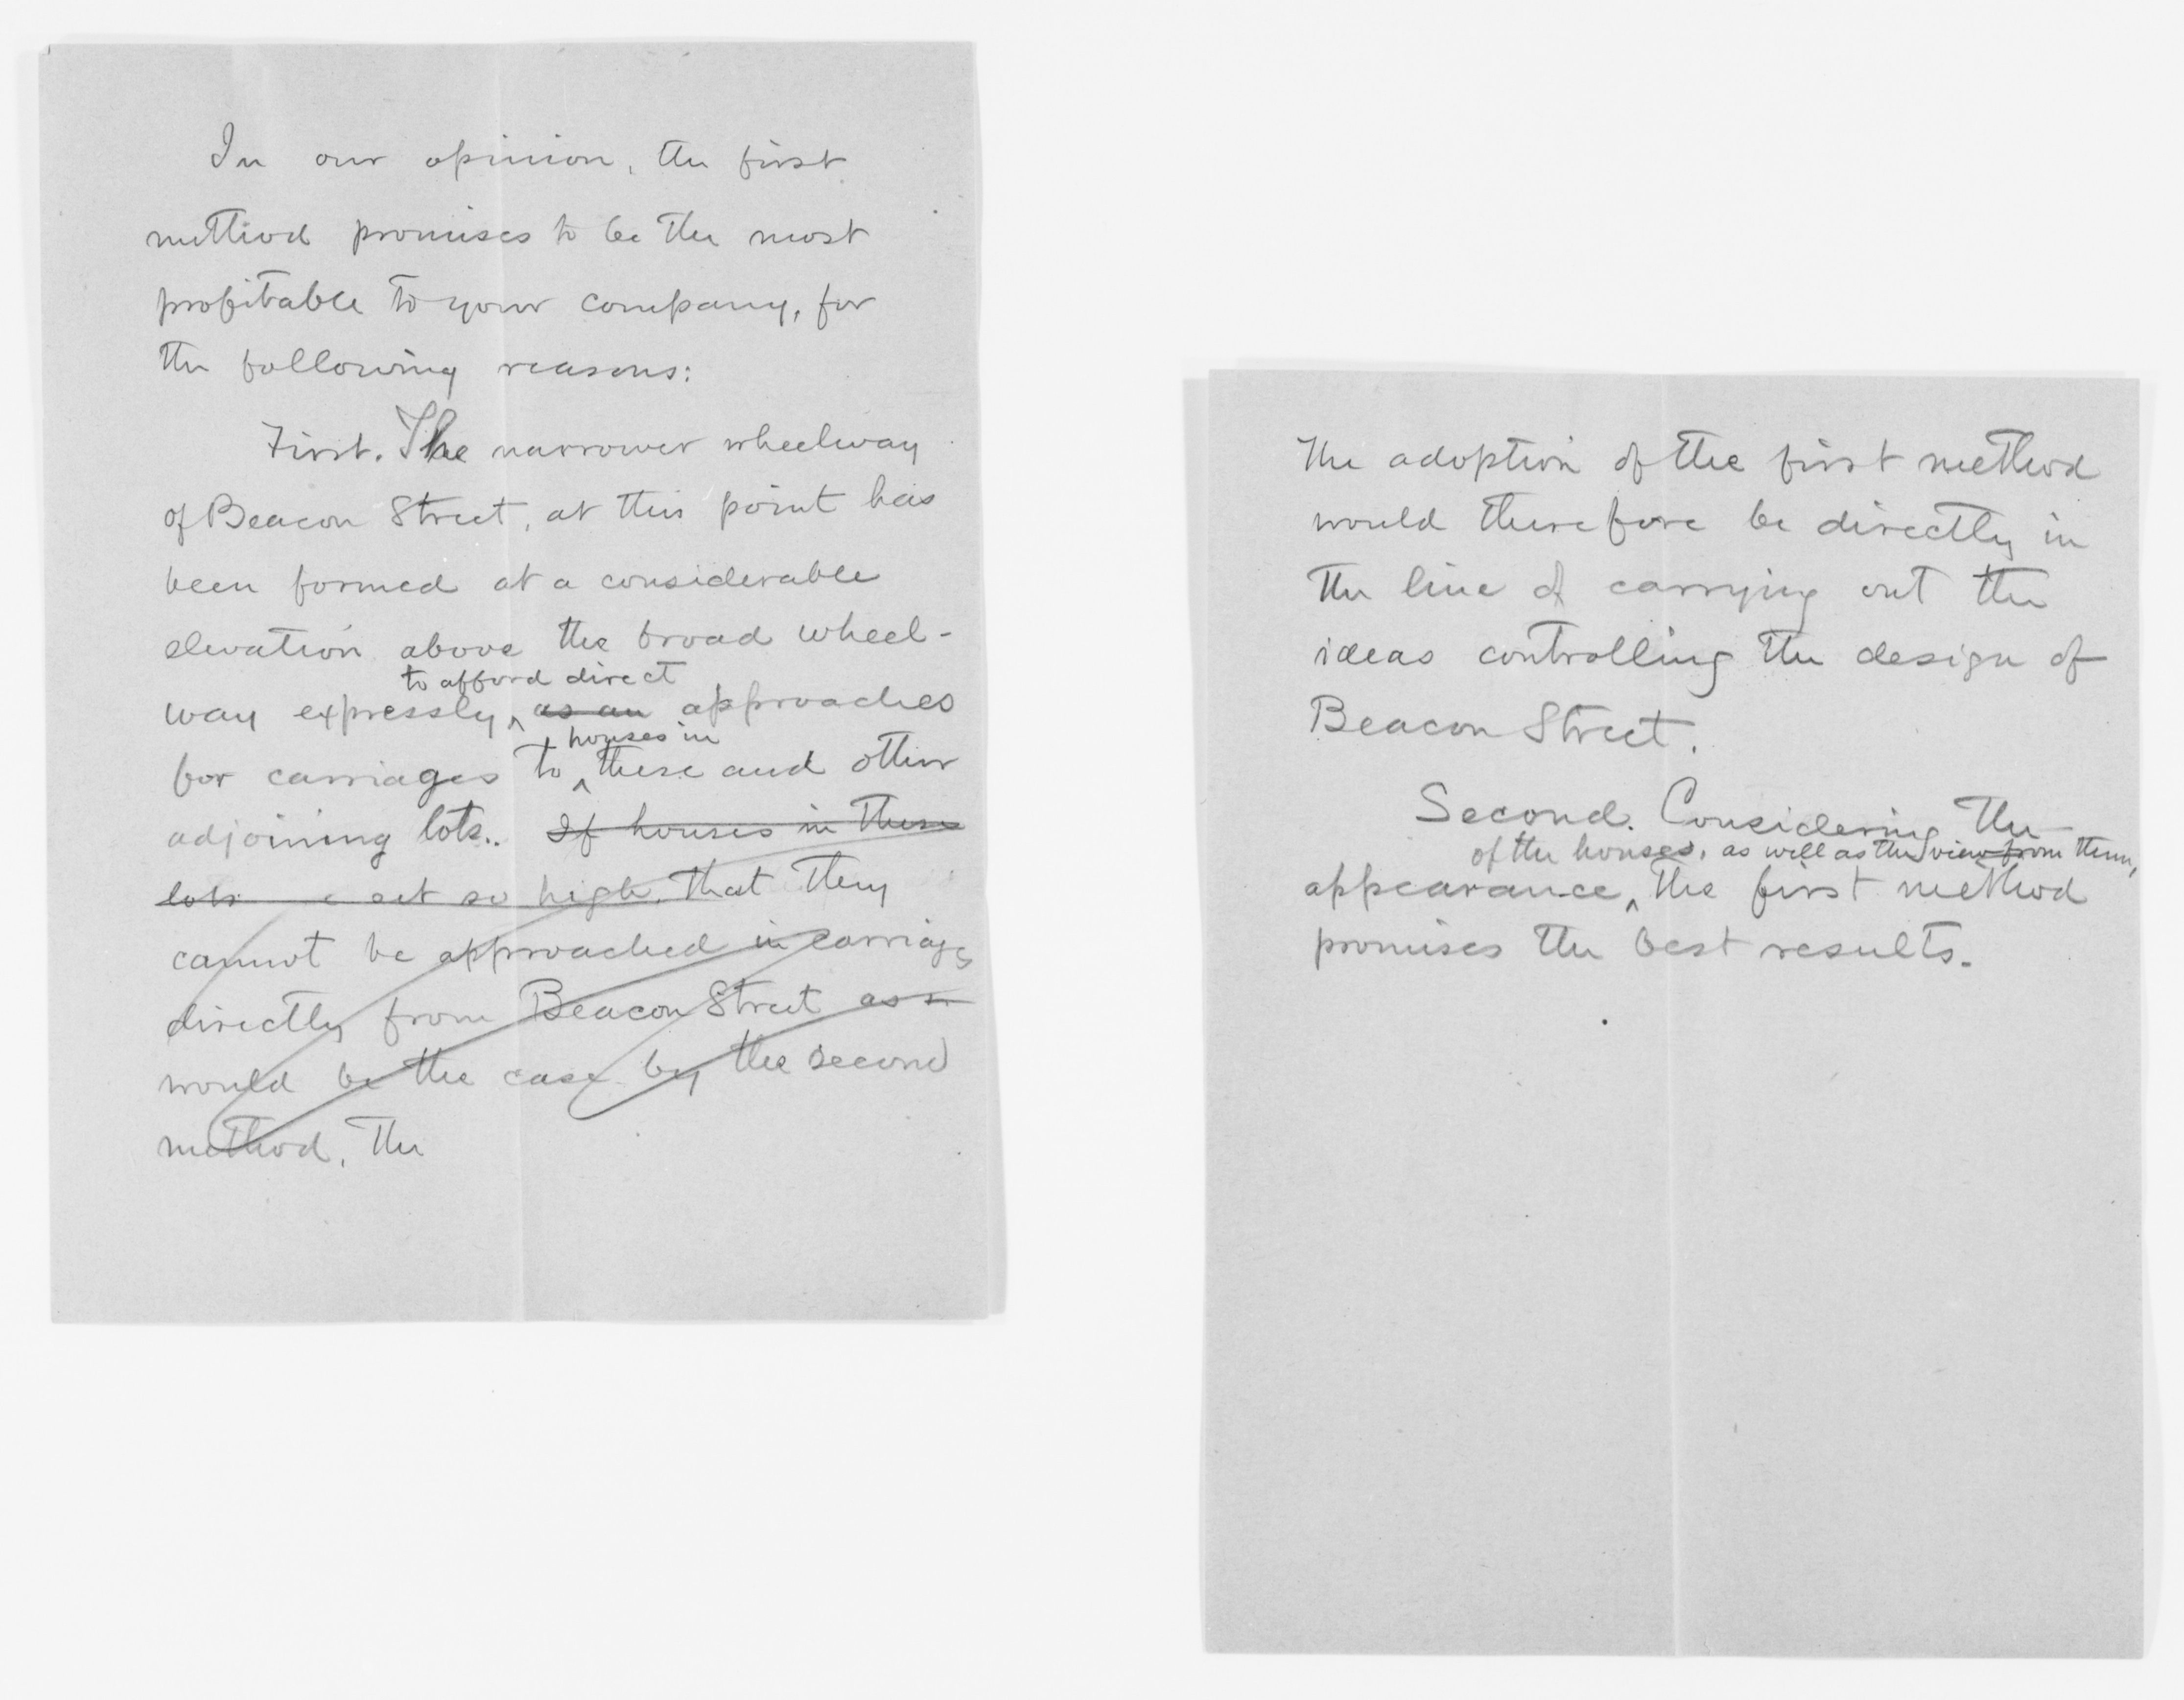 In our opinion, the first
method promises to be the most
profitable to your company, for
the following reasons:
First. The narrower wheelway
of Beacon Street, at this point has
been formed at a considerable
elevation above the broad wheel-
to afford direct
way expressly ^ as an approaches
houses in
for carriages to ^ these and other
adjoining lots.. If houses in these
lots set so high, that they
cannot be approached in carriages
directly from Beacon Street as
would be the case by the second
method. The
The adoption of the first method
would therefore be directly in
the line of carrying out the
ideas controlling the design of
Beacon Street.
Second. Considering the
of the houses, as well as the view from them,
appearance, ^ the first method
promises the best results.